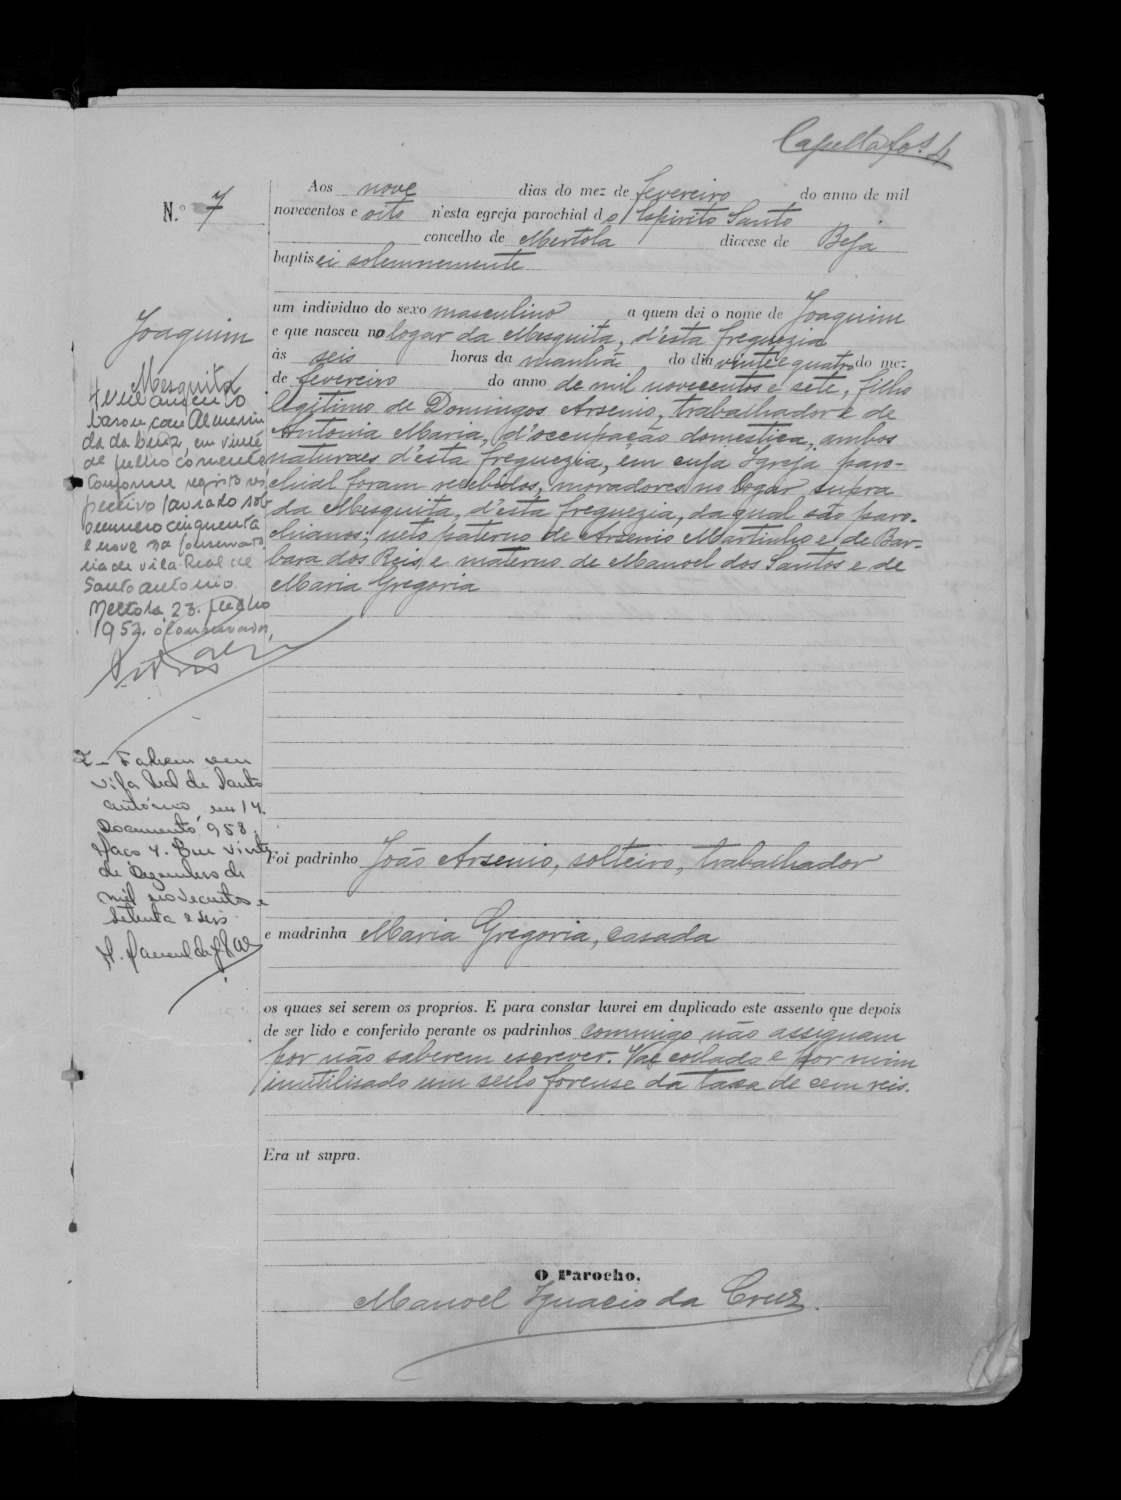 Capella fos. 4
N.º 7
Aos nove dias do mez de fevereiro do anno de mil
novecentos e oito n'esta egreja parochial do Espirito Santo
concelho de Mertola diocese de Beja
baptisei solemnemente
um individuo do sexo masculino a quem dei o nome de Joaquim
e que nasceu no logar da Mesquita, d'esta freguezia
ás seis horas da manhã do dia vinte e quatro do mez
de fevereiro do anno de mil novecentos e sete, filho
legitimo de Domingos Arsenio, trabalhador e de
Antonia Maria, d'occupação domestica, ambos
naturaes d'esta freguezia, em cuja Igreja paro-
chial foram recebidos, moradores no logar supra
da Mesquita, d'esta freguezia, da qual são paro-
chianos; neto paterno de Arsenio Martinho e de Bar-
bara dos Reis, e materno de Manoel dos Santos e de
Maria Gregoria
Foi padrinho João Arsenio, solteiro, trabalhador
e madrinha Maria Gregoria, casada
os quaes sei serem os proprios. E para constar lavrei em duplicado este assento que depois
de ser lido e conferido perante os padrinhos commigo não assignam
por não saberem escrever. Vae collado e por mim
inutilisado um sello forense da taxa de cem reis.
Era ut supra.
O Parocho,
Manoel Ignacio da Cruz.
Joaquim
Mesquita
casou com Almerin
da da Cruz, em vinte
de julho corrente
conforme registo res
pectivo lavrado sob
o numero cinquenta
e nove na Conservato
ria de Vila Real de
Santo António.
Mertola, 23. Julho
1952. o Conservador,
2- Faleceu em
Vila Real de Santo
António, em 14.
Documento 958.
Maço 4. Em vinte
de Dezembro de
mil novecentos e
setenta e seis